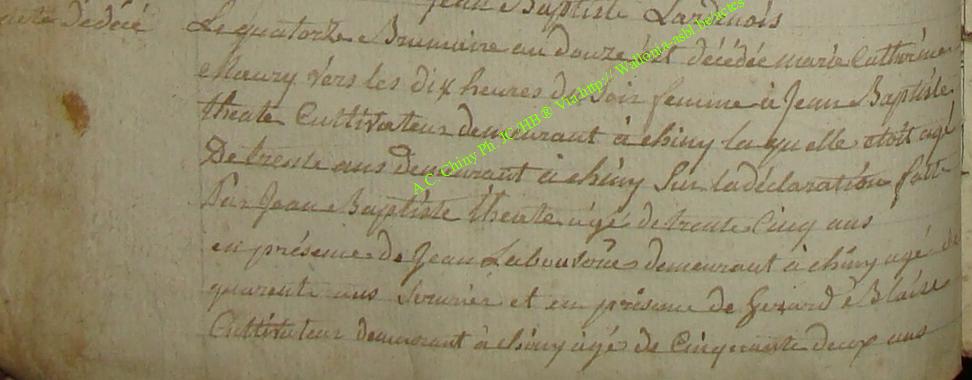 Jean Baptiste Lardenois
acte dédécé
Le quatorze Brumaire an douze est décédée marie Catherine
Maury vers les dix heures du Soir femme à Jean Baptiste
theate Cultivateur demeurant à chiny la quelle etoit agé
De trente ans demeurant à chiny Sur la déclaration faite
Par Jean Baptiste theate agé de trente Cinq ans
en présence de Jean demeurant à chiny agé de
quarente ans et en présence de Gerard Blaise
Cultivateur demeurant à chiny agé de Cinquante deux ans
A.C. Chiny Ph. JC. HB ® Via:http:// Wallonia-asbl be/actes